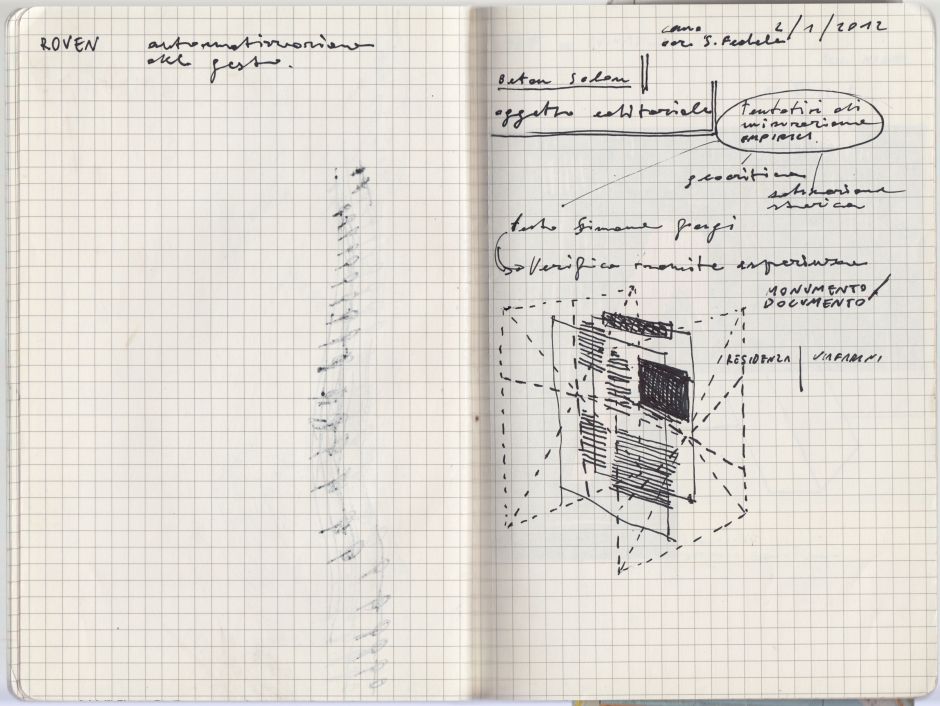 ROVEN
automatizzazione
del gesto.
2/1/2012
S. Fedele
Beton Salon
oggetto editoriale
tentativi di
misurazione
EMPIRICI.
geocritica
situazione
storica
testo Simone
Verifica tramite esperienze
MONUMENTO/
DOCUMENTO
RESIDENZA | VIAFARINI